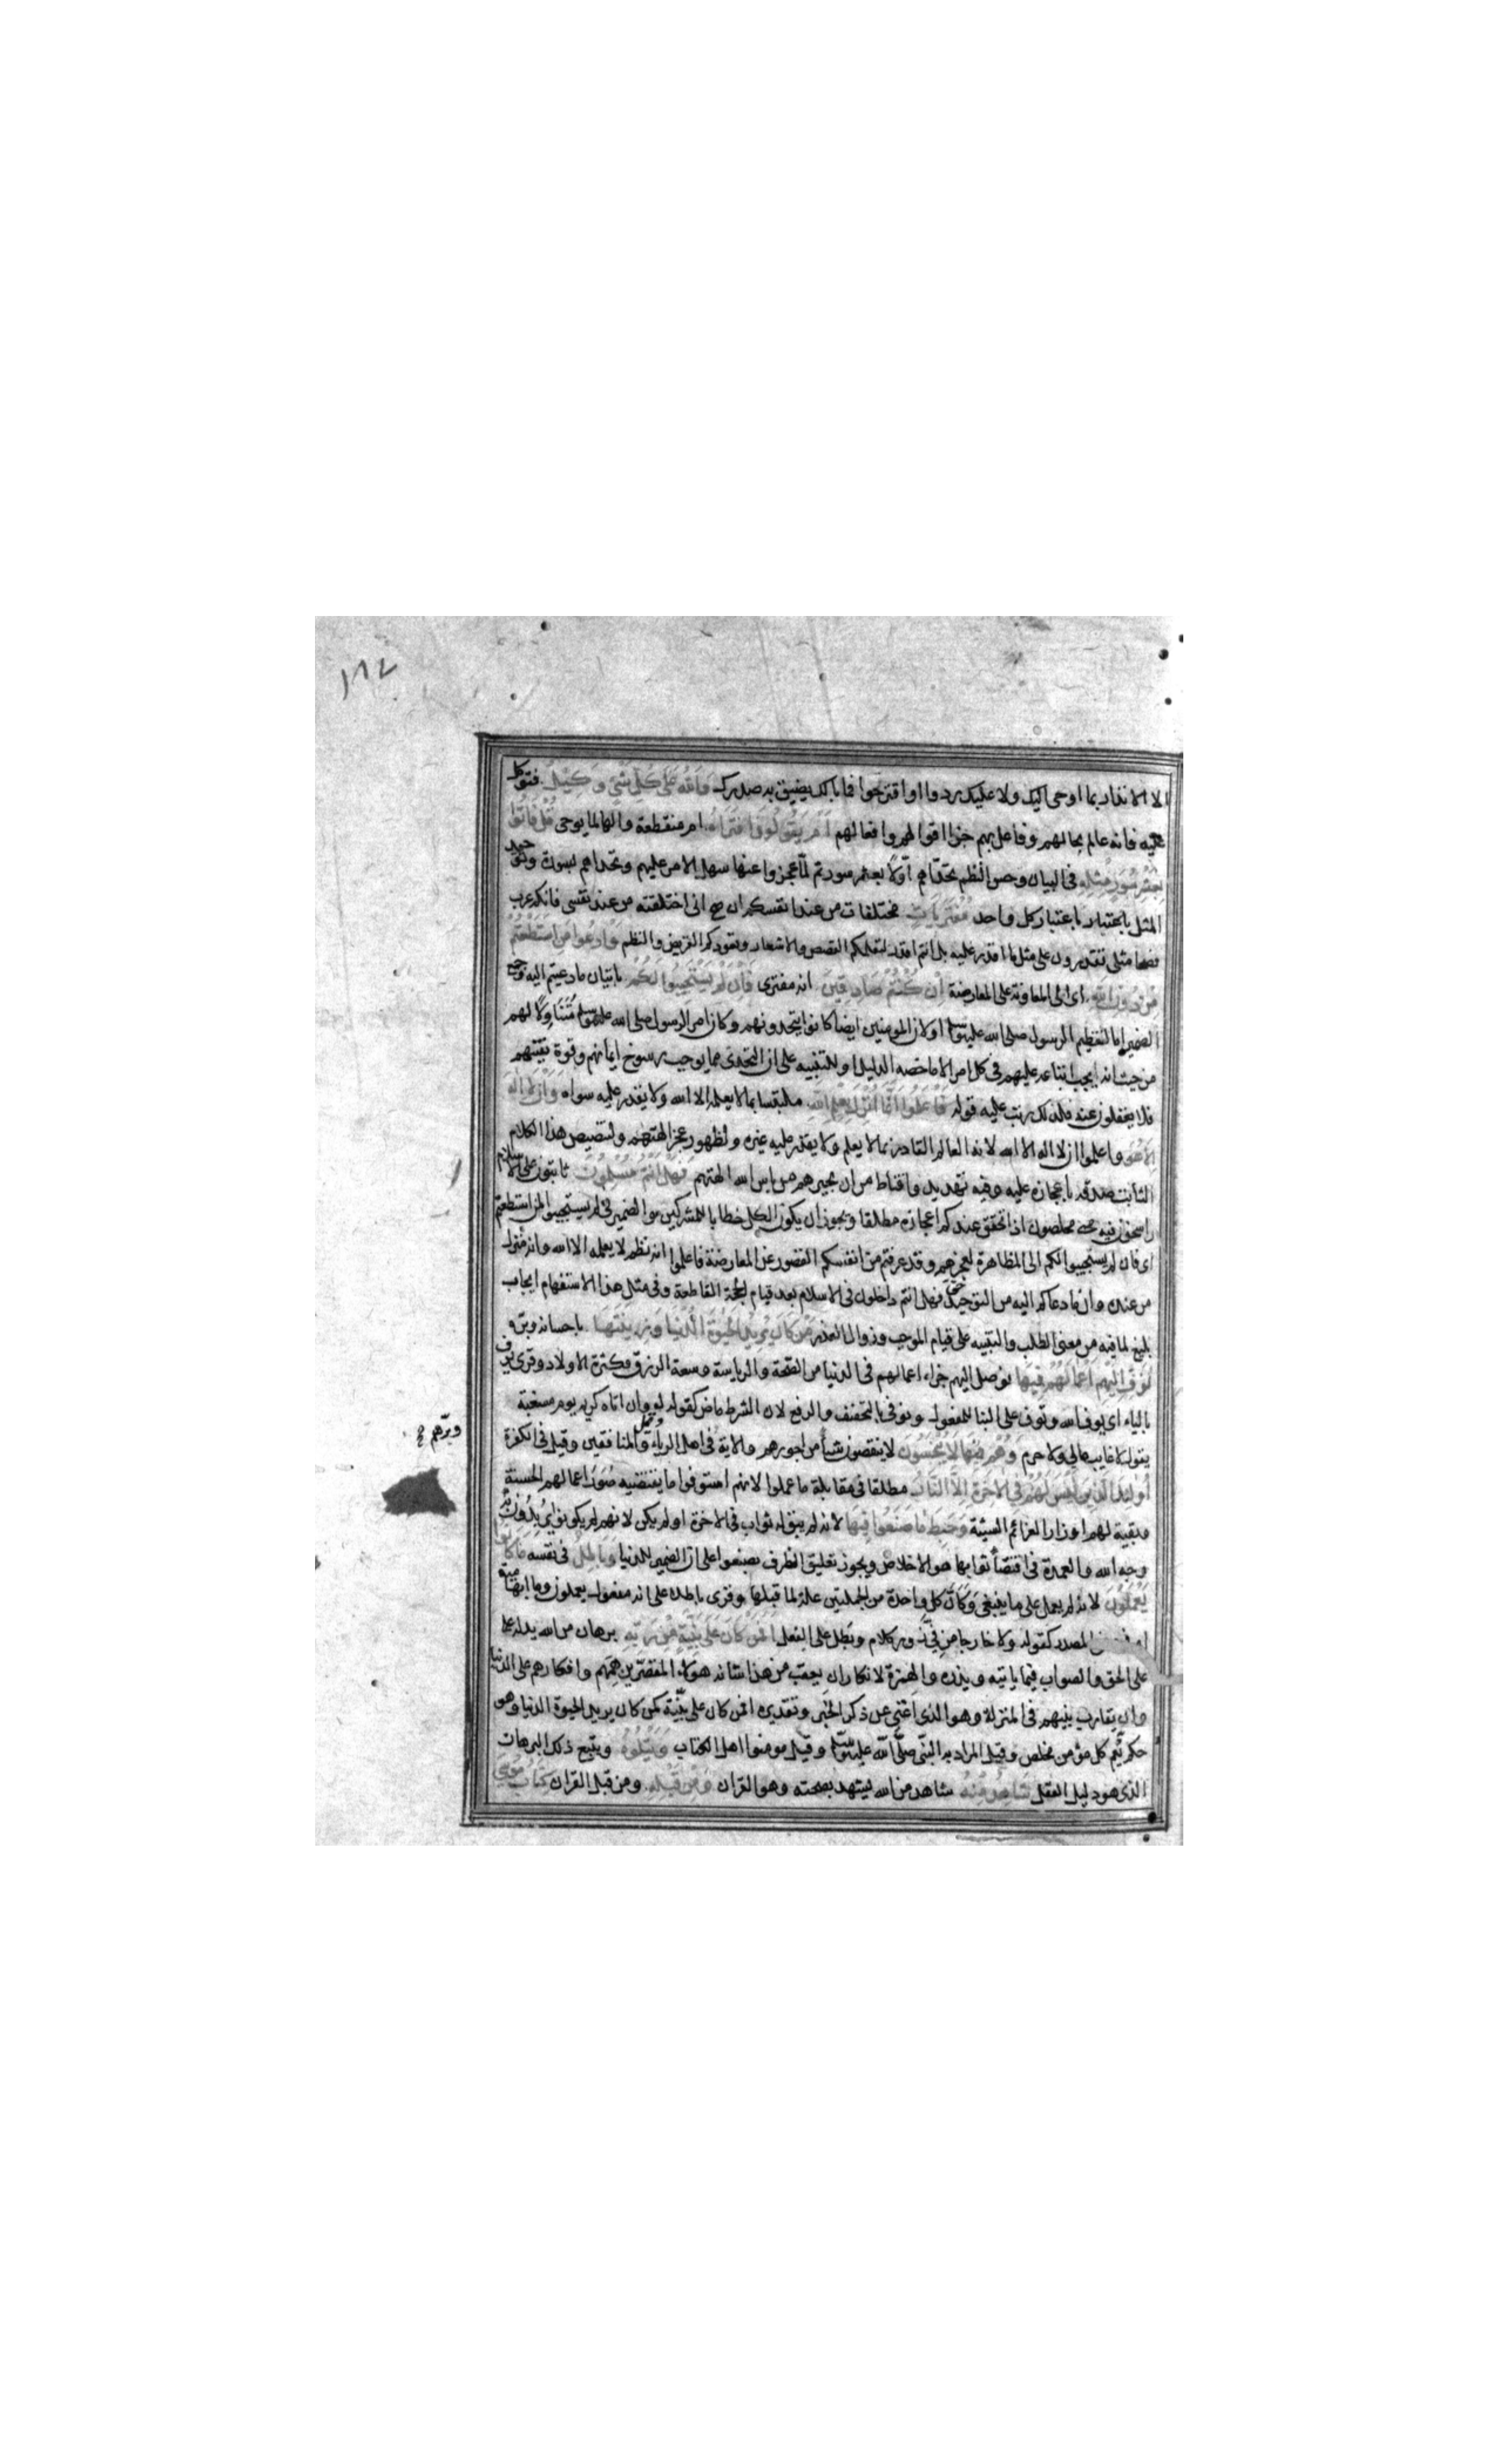 ١٨٧
الا الانذار بما اوحى اليك ولا عليك ردوا او اقترحوا فما بالك يضيق به صدرك وَاللهُ عَلَى كُلِّ شَيْءٍ وَكِيْلٌ فتوكل
عليه فانه عالم بحالهم وفاعل بهم جزا اقوالهم وافعالهم اَمْ يَقُوْلُوْنَ افْتَرَاهُ ام منقطعة والها لما يوحى قُلْ فَأتُوْا
بِعَشْرِ سُوَرٍ مِّثْلِهِ فى البيان وحسن النظم تحداهم اولا بعشر سور ثم لما عجزوا عنها سهل الامر عليهم وتحداهم بسورة وتوحيد
المثل باعتبار كل واحد مُفْتَرَيَاتٍ مختلقات من عند انفسكم ان صح انى اختلقته من عند نفسى فانكم عرب
فصحا مثلى تقدرون على مثل ما اقدر عليه بل انتم اقدر لتعلمكم القصص والاشعار وتعودكم القريض والنظم وَادْعُوْا مَنِ اسْتَطَعْتُمْ
مِنْ دُوْنِ اللهِ اى الى المعاونة على المعارضة اِنْ كُنْتُمْ صَادِقِيْنَ انه مفترى فَاِنْ لَمْ يَسْتَجِيْبُوْا لَكُمْ باتيان ما دعيتم اليه وجمع
الضمير اما لتعظيم الرسول صلى الله عليه وسلم او لان المومنين ايضا كانوا يتحدونهم وكان امر الرسول صلى الله عليه وسلم متناولا لهم
من حيث انه يجب اتباعه عليهم فى كل امر الا ما خصه الدليل او للتنبيه على ان التحدى مما يوجب رسوخ ايمانهم وقوة يقينهم
فلا يغفلون عنه فلذلك رتب عليه قوله فَاعْلَمُوْا اَنَّمَا اُنْزِلَ بِعِلْمِ اللهِ ملتبسا بما لا يعلمه الا الله ولا يقدر عليه سواه وَاَنْ لَا اِلٰهَ
اِلَّا هُوَ واعلموا ان لا اله الا الله لانه العالم القادر بما لا يعلم ولا يقدر عليه غيره ولظهور عجز الهتهم ولتنصيص هذا الكلام
الثابت صدقه باعجازه عليه وفيه تهديد واقناط من ان يجيرهم من باس الله الهتهم فَهَلْ اَنْتُمْ مُسْلِمُوْنَ ثابتون على الاسلام
راسخون فيه مخلصون اذا تحقق عندكم اعجازه مطلقا ويجوز ان يكون الكل خطابا للمشركين والضمير فى لم يستجيبوا لمن استطعتم
اى فان لم يستجيبوا لكم الى المظاهرة لعجزهم وقد عرفتم من انفسكم القصور عن المعارضة فاعلموا انه نظم لا يعلمه الا الله وانه منزل
من عنده وان ما دعاكم اليه من التوحيد حق فهل انتم داخلون فى الاسلام بعد قيام الحجة القاطعة وفى مثل هذا الاستفهام ايجاب
بليغ لما فيه من معنى الطلب والتنبيه على قيام الموجب وزوال العذر مَنْ كَانَ يُرِيْدُ الْحَيٰوةَ الدُّنْيَا وَزِيْنَتَهَا باحسانه وبره
نُوَفِّ اِلَيْهِمْ اَعْمَالَهُمْ فِيْهَا نوصل اليهم جزاء اعمالهم فى الدنيا من الصحة والرياسة وسعة الرزق وكثرة الاولاد وقرى يوف
بالياء اى يوف الله وتوف على البنا للمفعول ونوفى بالتخفيف والرفع لان الشرط ماض كقوله وان اتاه كريم يوم مسغبة
يقول لا غايب مالى ولا حرم وَهُمْ فِيْهَا لَا يُبْخَسُوْنَ لا ينقصون شيأ من اجورهم والاية فى اهل الرياء والمنافقين وقيل فى الكفرة
وبرهم صح
اُولٰئِكَ الَّذِيْنَ لَيْسَ لَهُمْ فِى الْاٰخِرَةِ اِلَّا النَّارُ مطلقا فى مقابلة ما عملوا لانهم استوفوا ما يقتضيه صور اعمالهم الحسنة
وبقيت لهم اوزار العزائم السيئة وَحَبِطَ مَا صَنَعُوْا فِيْهَا لانه لم يبق له ثواب فى الاخرة او لم يكن لانهم لم يكونوا يريدون به
وجه الله والعمدة فى اقتضأ ثوابها هو الاخلاص ويجوز تعليق الظرف بصنعوا على ان الضمير للدنيا وَبَاطِلٌ فى نفسه مَا كَانُوْا
يَعْمَلُوْنَ لانه لم يعمل على ما ينبغى وكان كل واحدة من الجملتين علة لما قبلها وقرى باطلا على انه مفعول يعملون وما ابهامية
المصدر كقوله ولا خارجا من فى زور كلام وبطل على الفعل اَفَمَنْ كَانَ عَلَى بَيِّنَةٍ مِنْ رَبِّهِ برهان من الله يدله على
على الحق والصواب فيما ياتيه ويذره والهمزة لانكار ان يعقب من هذا شانه هؤلاء المقصرين هممهم وافكارهم على الدنيا
وان يقارب بينهم فى المنزلة وهو الذى اغنى عن ذكر الخبر وتقديره افمن كان على بينة كمن كان يريد الحيوة الدنيا وهو
حكم يعم كل مؤمن مخلص وقيل المراد به النبى صلى الله عليه وسلم وقيل مومنوا اهل الكتاب وَيَتْلُوْهُ ويتبع ذلك البرهان
الذى هو دليل العقل شَاهِدٌ مِنْهُ شاهد من الله يشهد بصحته وهو القران وَمِنْ قَبْلِهِ ومن قبل القران كِتَابُ مُوْسٰى